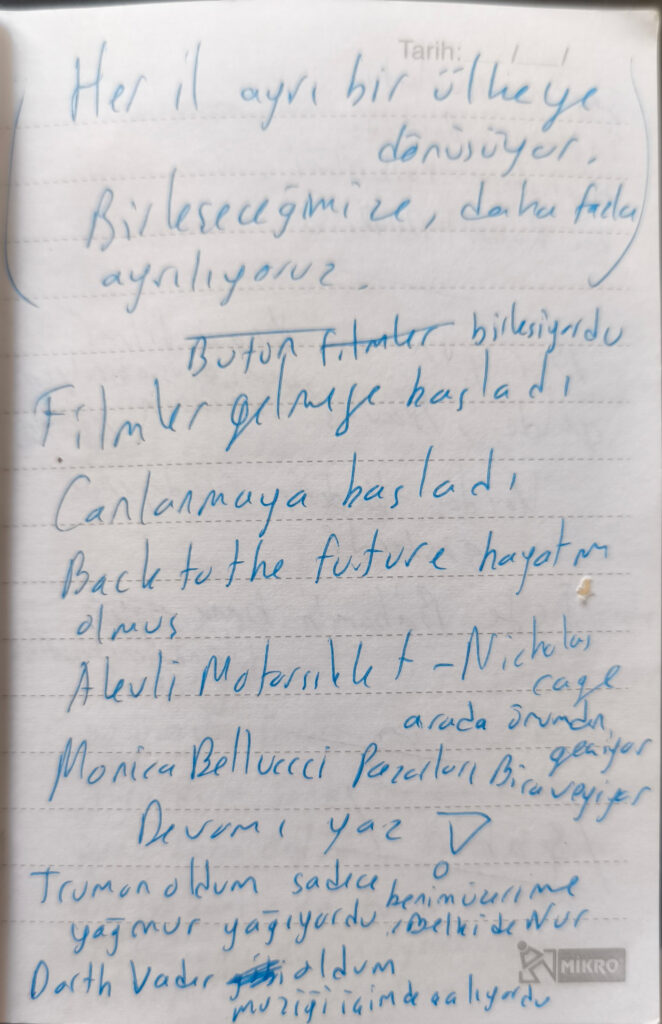 Tarih: / /
Her il ayrı bir ülkeye
dönüşüyor.
Birleşeceğimize, daha fazla
ayrılıyoruz.
Bütün filmler birleşiyordu
Filmler gelmeye başladı
Canlanmaya başladı
Back to the future hayatım
olmuş
Alevli Motorsiklet - Nicholas
cage
arada önümden
geçiyor
Monica Bellucci Pazarları Bira veriyor
Devamı yaz
Truman oldum sadece benim üzerime
yağmur yağıyordu, Belki de Nur
Darth Vader oldum
müziği içimde çalıyordu
MİKRO